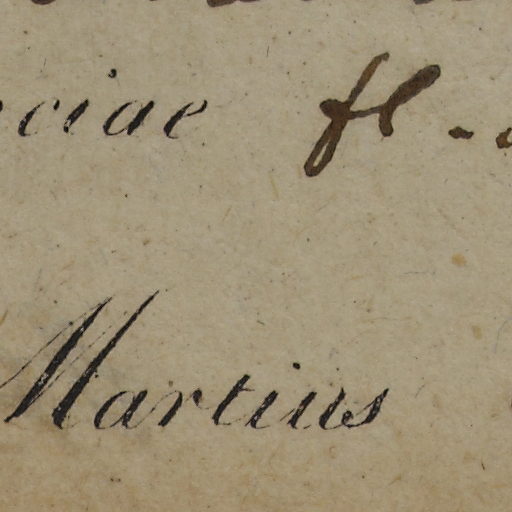 ciae fl.
Martius